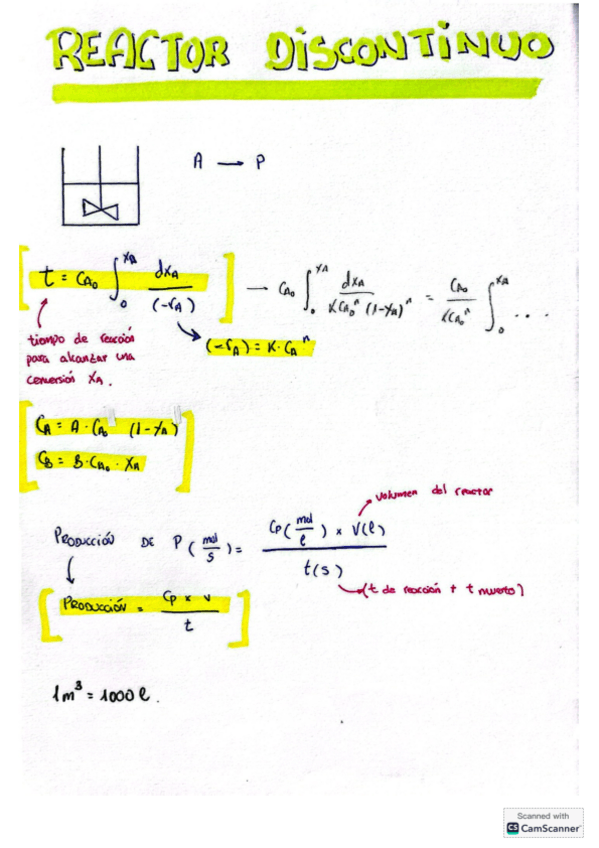 REACTOR DISCONTINUO
A → P
t = CA₀ ∫₀^XA dXA / (-rA) → CA₀ ∫₀^XA dXA / KCA₀ⁿ (1-XA)ⁿ = CA₀ / KCA₀ⁿ ∫₀^XA ...
tiempo de reacción
para alcanzar una
conversión XA.
(-rA) = K · CAⁿ
CA = A · CA₀ (1-XA)
CB = B · CA₀ · XA
volumen del reactor
PRODUCCIÓN DE P (mol/s) = CP (mol/l) × V(l) / t(s)
(t de reacción + t muerto)
PRODUCCIÓN = CP × V / t
1m³ = 1000 l.
Scanned with
CS CamScanner